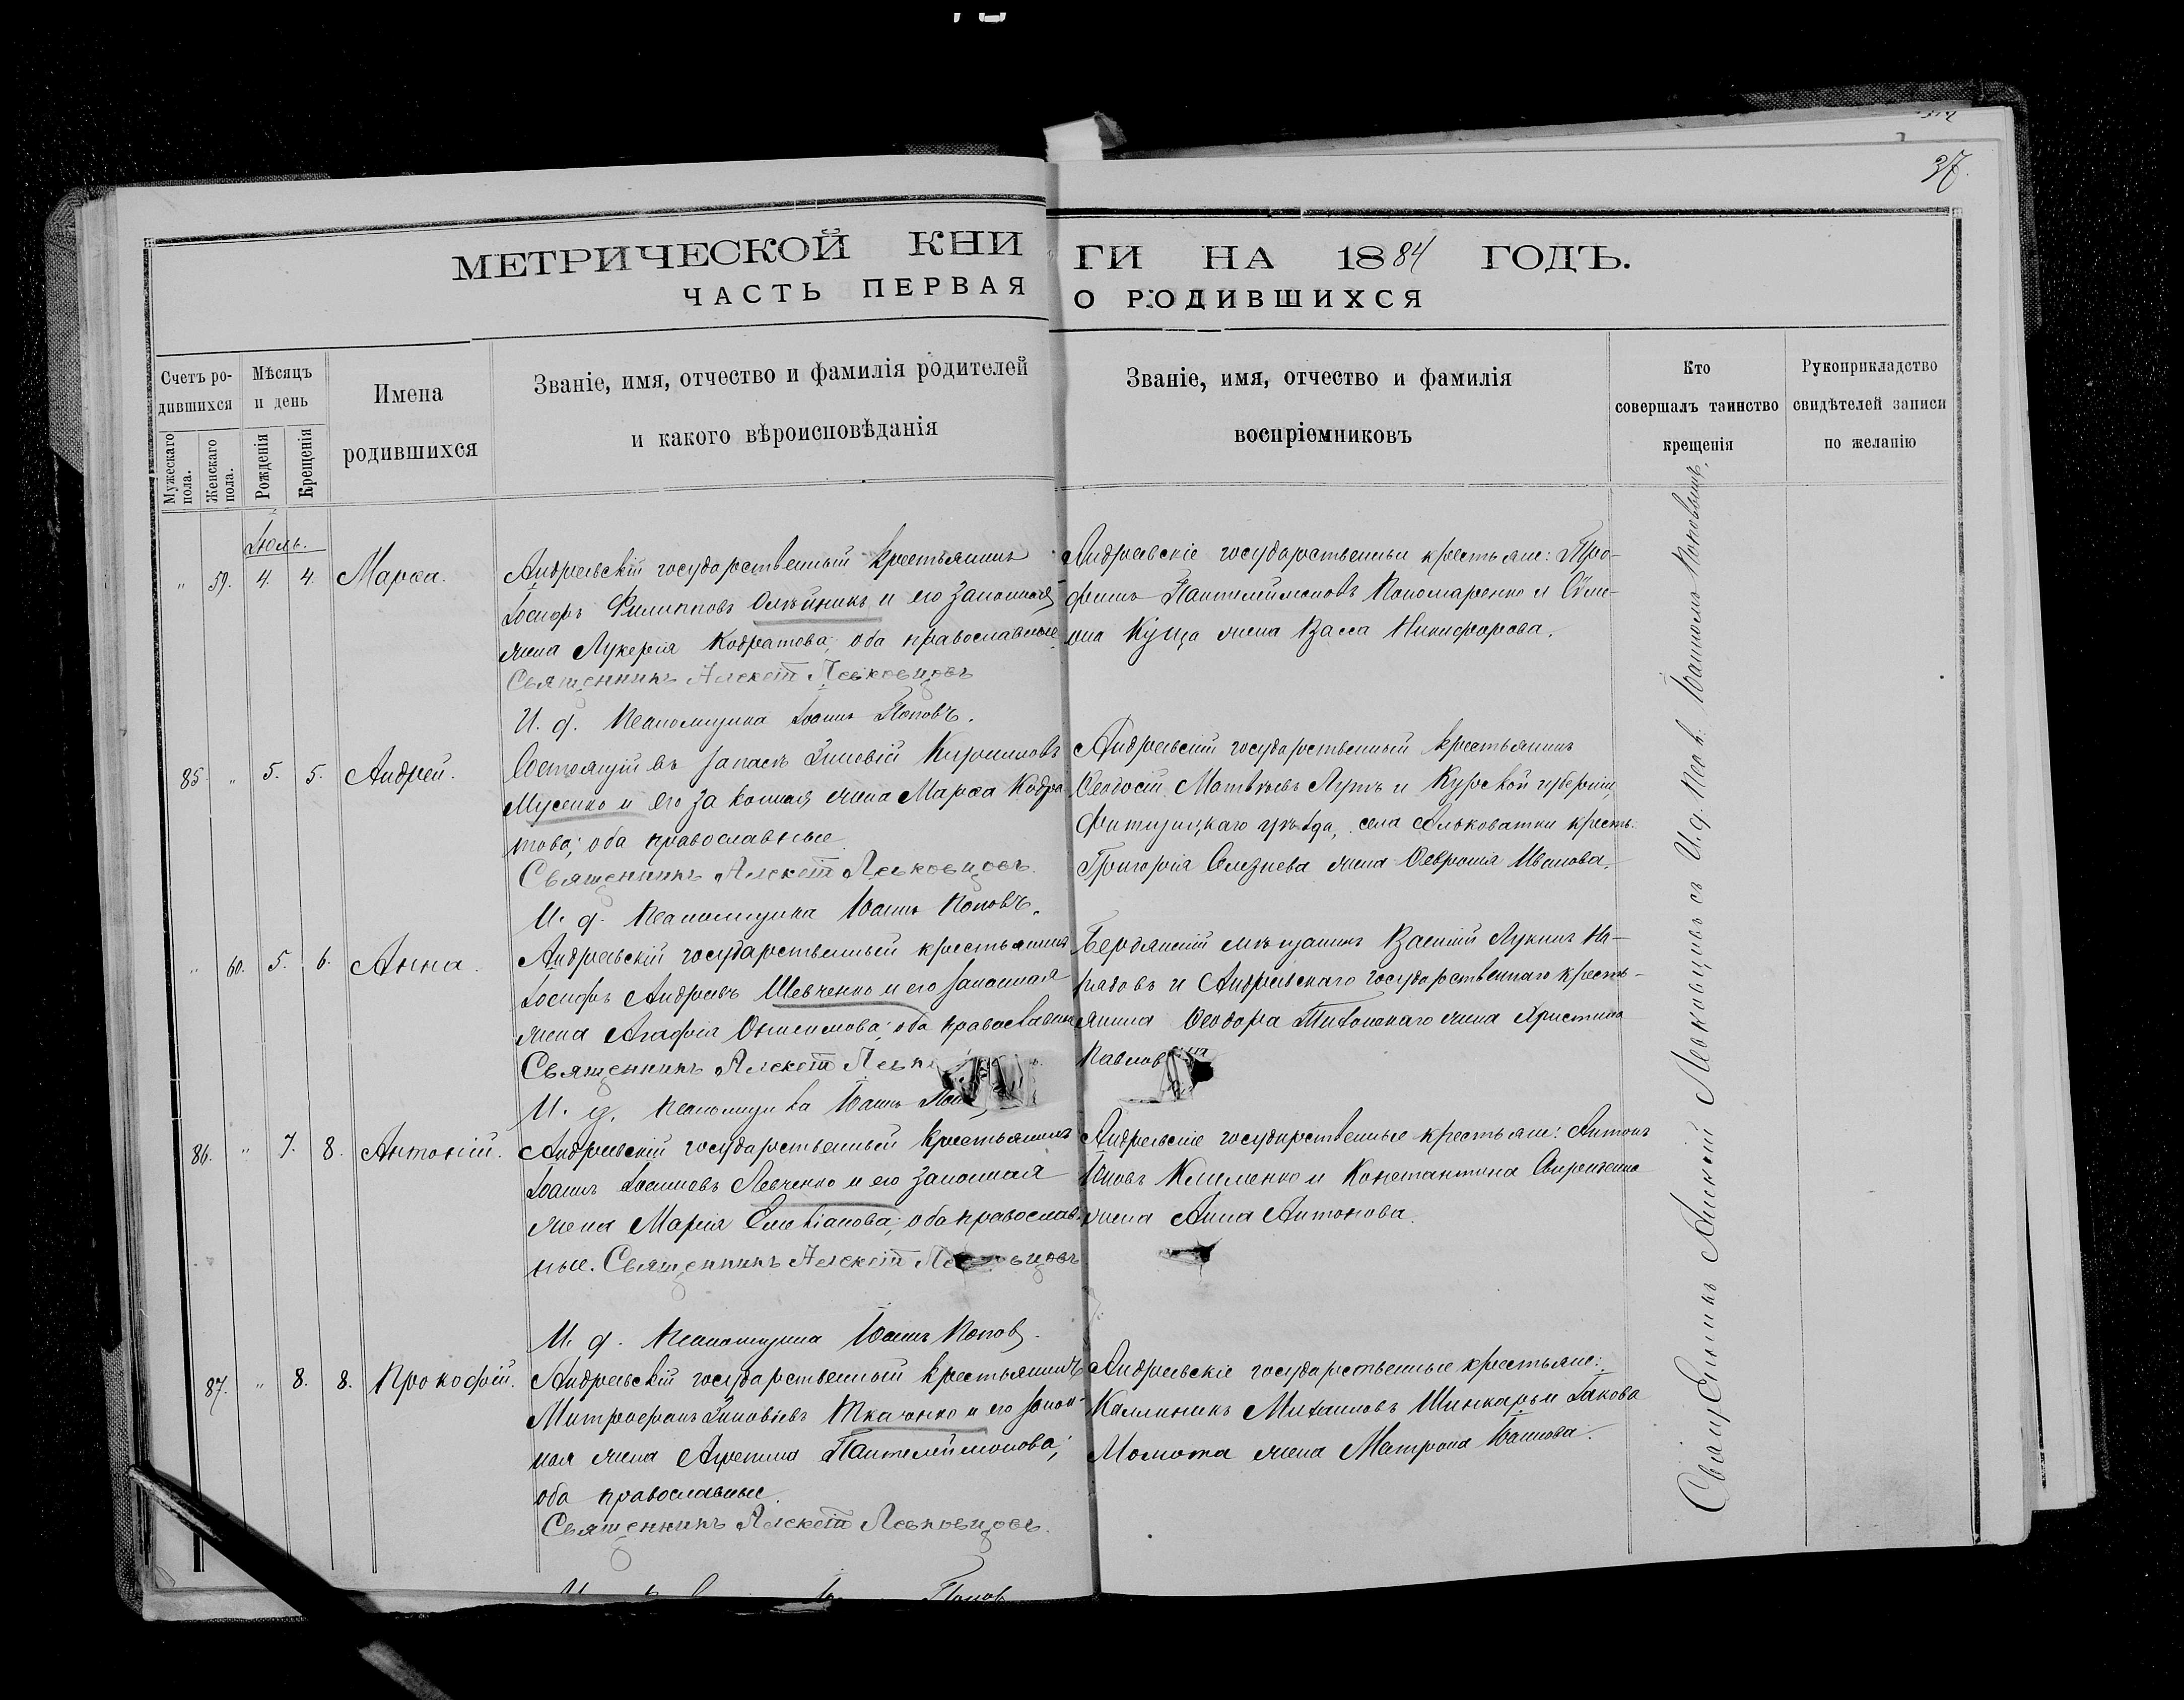 37.
МЕТРИЧЕСКОЙ КНИГИ НА 1884 ГОДЪ.
ЧАСТЬ ПЕРВАЯ О РОДИВШИХСЯ
Счетъ родившихся
Мужескаго пола.
Женскаго пола.
Мѣсяцъ и день
Рожденія
Крещенія
Имена родившихся
Званіе, имя, отчество и фамилія родителей
и какого вѣроисповѣданія
Званіе, имя, отчество и фамилія
воспріемниковъ
Кто
совершалъ таинство
крещенія
Рукоприкладство
свидѣтелей записи
по желанію
Іюль.
„ 59. 4. 4. Марѳа.
Андреевскій государственный крестьянинъ
Іосифъ Филипповъ Олѣйникъ и его законная
жена Лукерія Кодратова; оба православные.
Священникъ Алексій Левковцовъ
И. д. Псаломщика Іоаннъ Поповъ.
Андреевскіе государственные крестьяне: Тро-
фимъ Пантелеймоновъ Пономаренко и Симе-
она Куща жена Васса Никифорова.
85. „ 5. 5. Андрей.
Состоящій въ запасѣ Зиновій Кирилловъ
Мусенко и его законная жена Марѳа Кодра-
това; оба православные.
Священникъ Алексій Левковцовъ.
И. д. Псаломщика Іоаннъ Поповъ.
Андреевскій государственный крестьянинъ
Ѳеодосій Матвѣевъ Лутъ и Курской губерніи,
уѣзда, села Ольховатки кресть.
Григорія Селезнева жена Ѳевронія Иванова.
„ 60. 5. 6. Анна.
Андреевскій государственный крестьянинъ
Іосифъ Андреевъ Шевченко и его законная
жена Агафія Онисимова; оба православные
Священникъ Алексій
И. д. Псаломщика Іоаннъ
Бердянскій мѣщанинъ Василій Лукинъ На-
рядовъ и Андреевскаго государственнаго кресть-
янина Ѳеодора Тихонскаго жена Христина
86. „ 7. 8. Антоній.
Андреевскій государственный крестьянинъ
Іоаннъ Іоанновъ Левченко и его законная
жена Марія Емеліанова; оба православ-
ные. Священникъ Алексій Левковцовъ
И. д. Псаломщика Іоаннъ Поповъ.
Андреевскіе государственные крестьяне: Антонъ
Іоновъ Клименко и Константина Свириденка
жена Анна Антонова.
87. „ 8. 8. Прокофій.
Андреевскій государственный крестьянинъ
Митрофанъ Зиновіевъ Ткаченко и его закон-
ная жена Агрепина Пантелеймонова;
оба православные.
Священникъ Алексій Левковцовъ.
Поповъ
Андреевскіе государственные крестьяне:
Каллиникъ Михаиловъ Шинкарь и Іакова
Момота жена Матрона Іоаннова.
Священникъ Алексій Левковцовъ съ И. д. Псал. Іоанномъ Поповымъ.